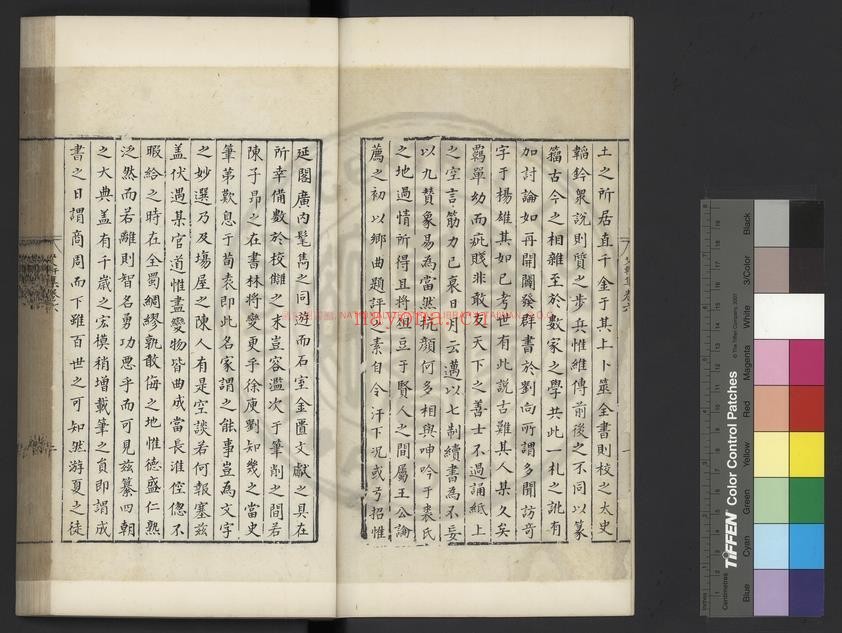 土之所居直千金于其上卜筮全書則校之太史
韜鈐衆説則質之步兵惟維傳前後之不同以篆
籀古今之相雜至於數家之學共此一札之訛有
加討論如再開闢發群書於劉向所謂多聞訪奇
字于楊雄其如已老世有此説古難其人某久矣
羇單幼而疵賤非敢友天下之善士不過誦紙上
之空言筋力已衰日月云邁以七制續書為不妄
以九贊象易為當然抗顔何多相與呻吟于裘氏
之地過情所得且將俎豆于賢人之間屬王公論
薦之初以鄉曲題評之素自令汗下况或弓招惟
延閣廣内髦雋之同遊而石室金匱文獻之具在
所幸備數於校讎之末豈容濫次于筆削之間若
陳子昻之在書林將變更乎徐庾劉知幾之當史
筆第歎息于荀袁即此名家謂之能事豈為文字
之妙選乃及塲屋之陳人有是空談若何報塞兹
盖伏遇某官道惟盡變物皆曲成當長淮倥偬不
暇給之時在全蜀綢繆孰敢侮之地惟德盛仁熟
泛然而若離則智名勇功悪乎而可見兹纂四朝
之大典盖有千歳之宏模稍增載筆之負即謂成
書之日謂商周而下雖百世之可知然游夏之徒
nayona.cn
Black
3/Color
White
Magenta
Red
Yellow
Green
Cyan
Blue
TIFFEN Color Control Patches
© The Tiffen Company, 2007
Centimetres